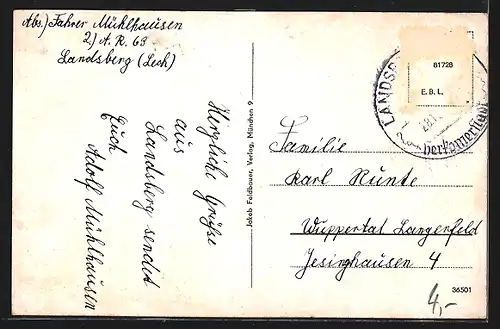 Abs.) Fahrer Mühlhausen
2) A. R. 63
Landsberg (Lech)
Herzliche Grüße
aus
Landsberg sendet
Euch
Adolf Mühlhausen
Jakob Feldbauer, Verlag, München 9
81728
E. B. L.
LANDSB
Familie
Karl Nunte
Wuppertal Langerfeld
Jesinghausen 4
36501
4,-